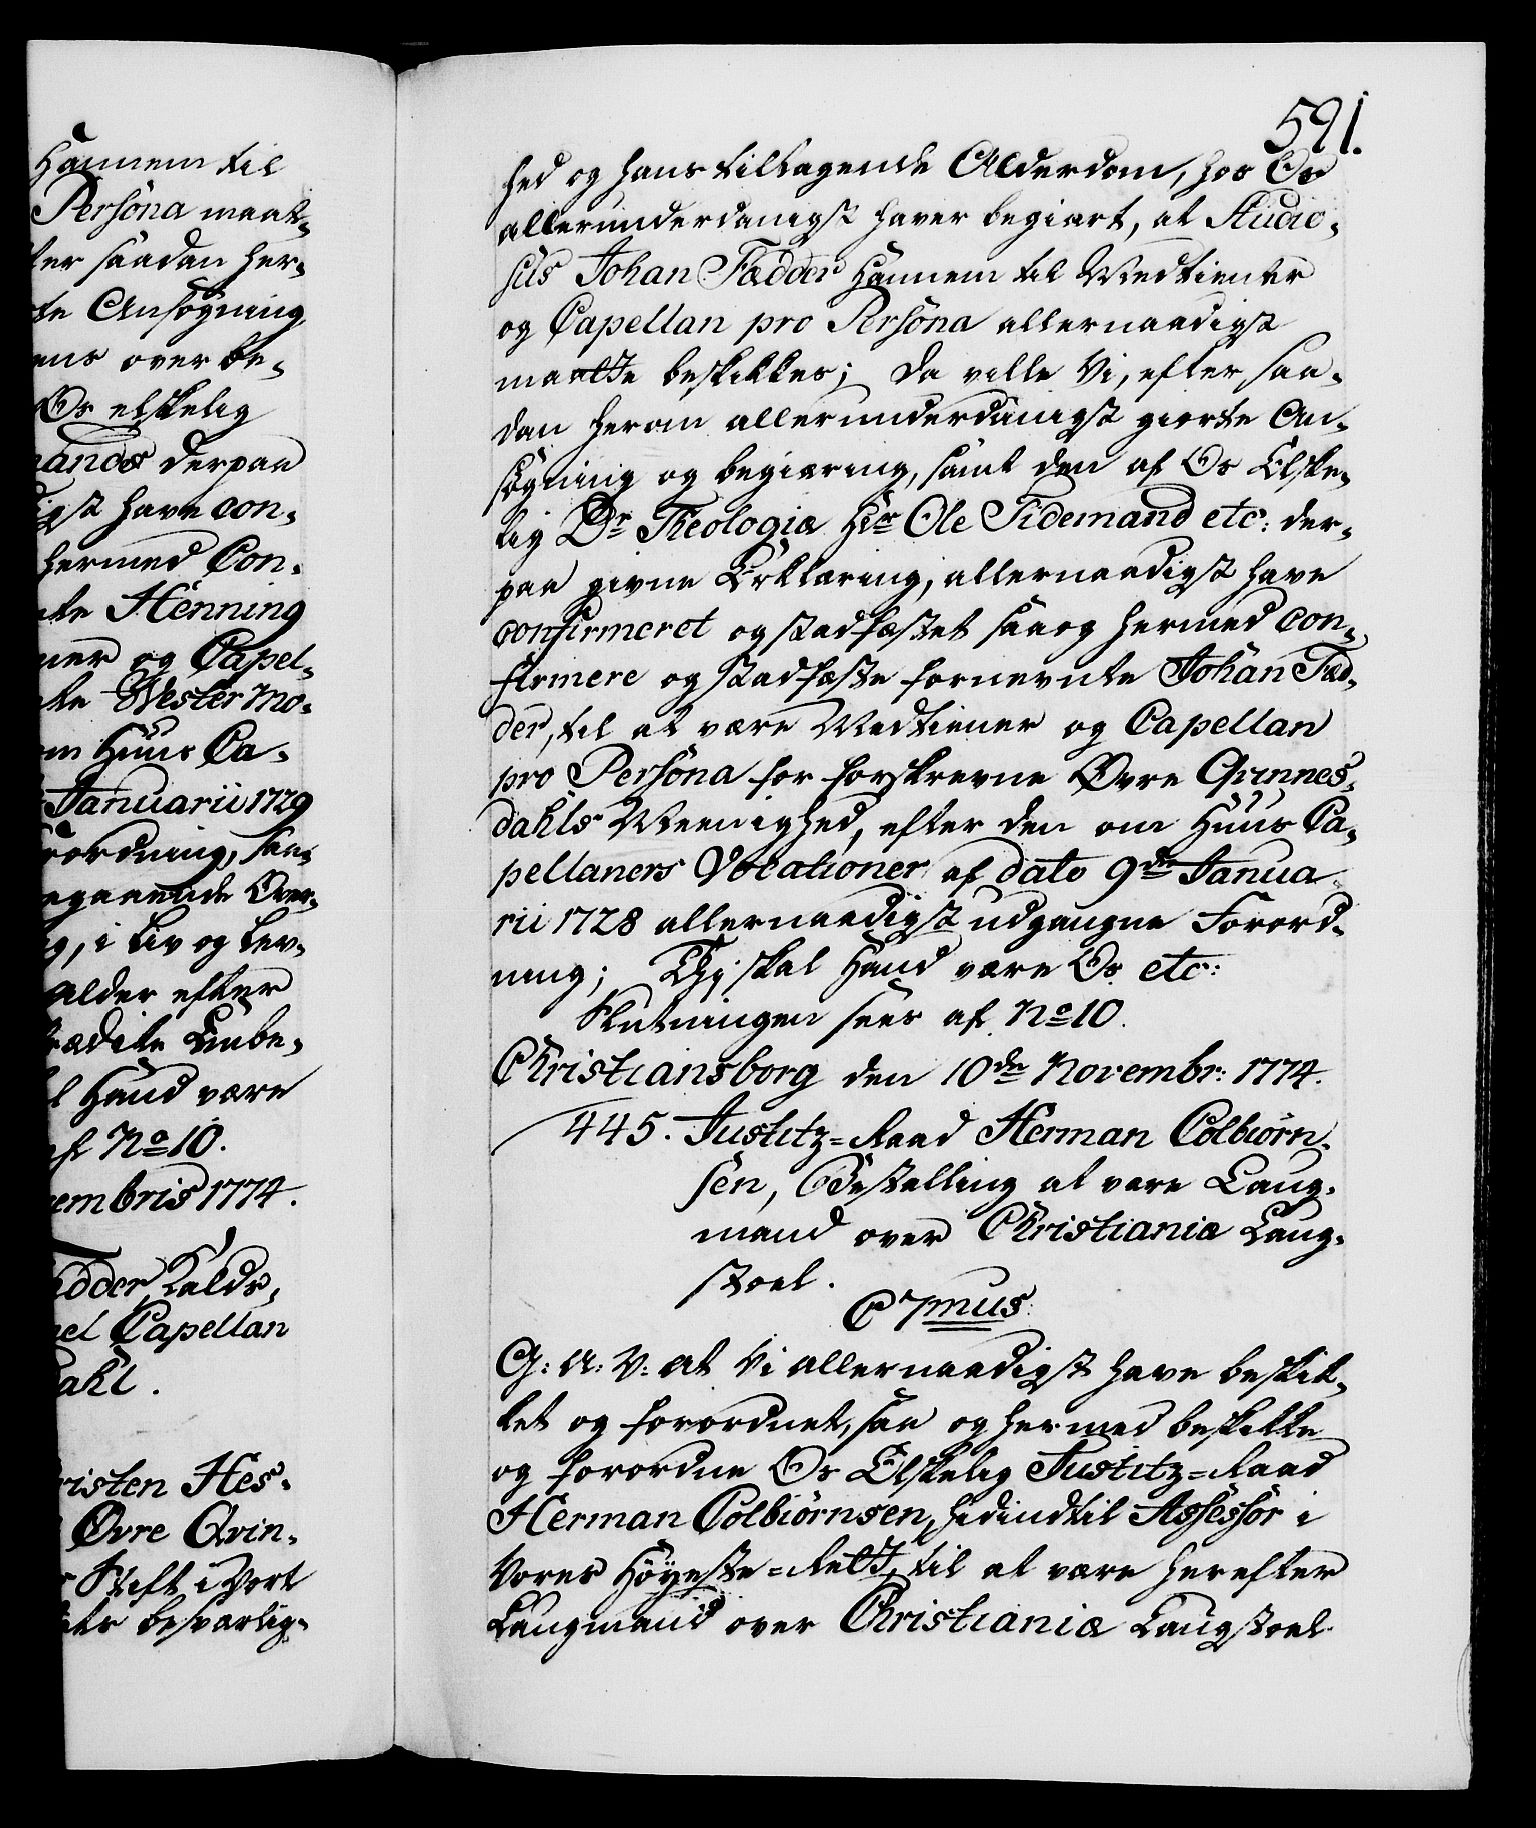 Hannem til
Persona maat-
ter saadan her-
te Ansøgning
ens over be-
Os elskelig
mands derpaa
igst have con-
hermed Con-
nte Henning
ner og Capel-
te Wester Mo-
om Huus Ca-
Januarii 1729
rordning, saa-
egaaende Over-
g, i Liv og Lev-
alder efter
rædite Embe-
l Hand være
af No 10.
embris 1774.
edder, Kalds-
el Capellan
dahl.
risten Hes-
Øvre Qvin-
Stift i Vort
ets besværlig-
591.
hed og hans tiltagende Alderdom, hos Os
allerunderdanigst haver begiært, at Studio-
sus Johan Fædder Hannem til Medtiener
og Capellan pro Persona allernaadigst
maatte beskikkes; Da ville Vi, efter saa-
dan herom allerunderdanigst giorte An-
søgning og begiæring, samt den af Os Elske-
lig Dr Theologiæ Hr Ole Tidemand etc: der-
paa givne Erklæring, allernaadigst have
confirmeret og stadfæstet saa og hermed con-
firmere og stadfæste fornevnte Johan Fæd-
der, til at være Medtiener og Capellan
pro Persona for forskrevne Øvre Qvinnes-
dahls Meenighed, efter den om Huus Ca-
pellaners Vocationer af dato 9de Janua-
rii 1728 allernaadigst udgangne Forord-
ning; Thj skal Hand være Os etc:
Slutningen sees af No 10.
Christiansborg den 10de Novembr: 1774.
445. Justitz=Raad Herman Colbiørn-
sen, Bestalling at være Laug-
mand over Christiania Laug-
stoel.
C 7mus
G: A: V: at Vi allernaadigst have beskik-
ket og forordnet, saa og hermed beskikke
og forordne Os Elskelig Justitz=Raad
Herman Colbiørnsen, hidindtil Assessor i
Vores Høyeste=Rett, til at være herefter
Laugmand over Christiania Laugstoel